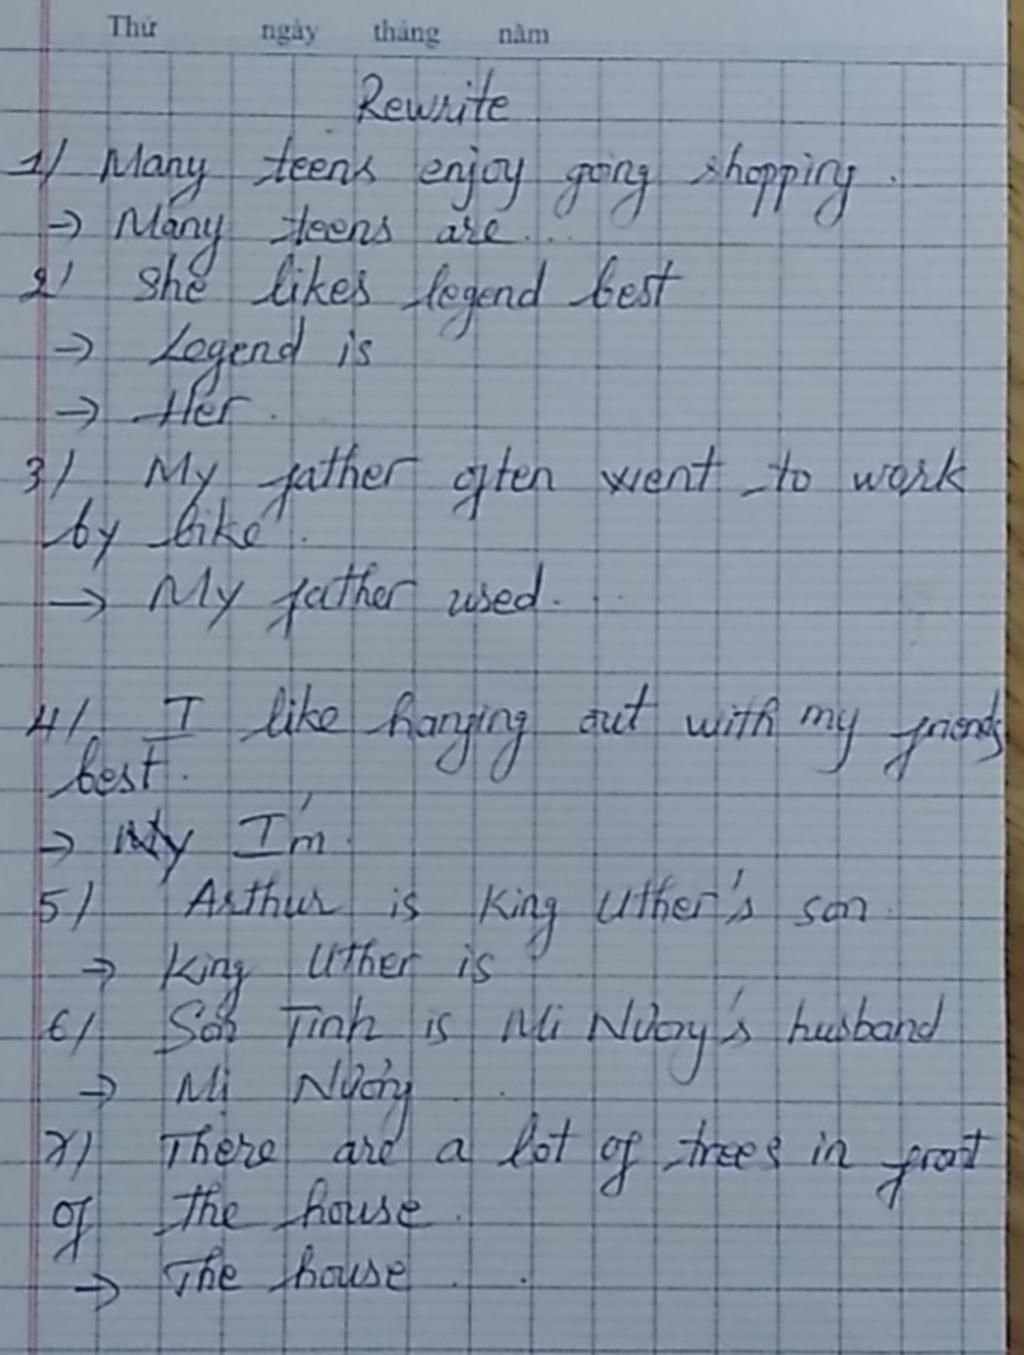 Thứ ngày tháng năm
Rewrite
1/ Many teens enjoy going shopping.
→ Many teens are...
2/ She likes legend best
→ Legend is
→ Her.
3/ My father often went to work
by bike.
→ My father used...
4/ I like hanging out with my friends
best.
→ I'm.
5/ Arthur is King Uther's son.
→ King Uther is
6/ Sơn Tinh is Mi Nương's husband
→ Mị Nương .
7/ There are a lot of trees in front
of the house.
→ The house . .